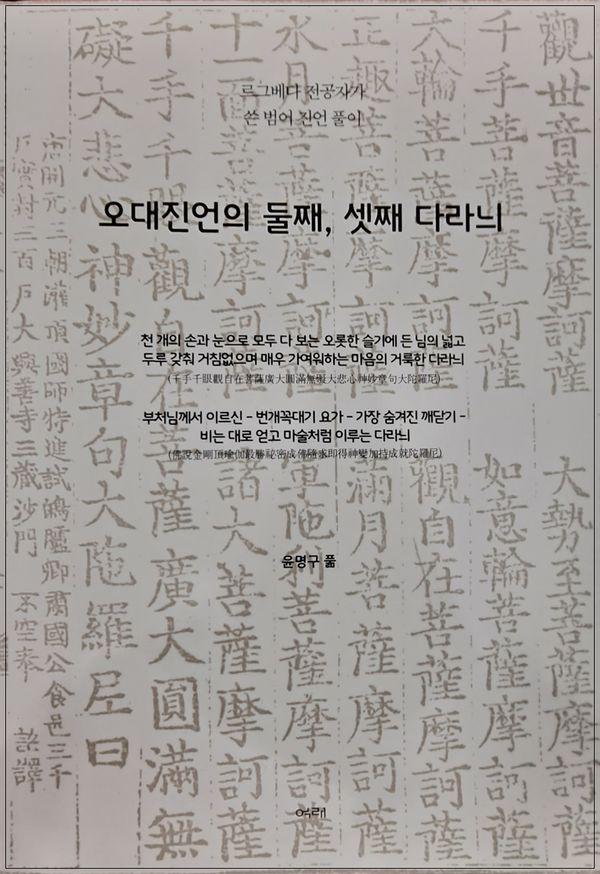 르그베다 전공자가
쓴 범어 진언 풀이
오대진언의 둘째, 셋째 다라늬
천 개의 손과 눈으로 모두 다 보는 오롯한 슬기에 든 님의 넓고
두루 갖춰 거침없으며 매우 가여워하는 마음의 거룩한 다라늬
(千手千眼觀自在菩薩廣大圓滿無礙大悲心神妙章句大陀羅尼)
부처님께서 이르신 - 번개꼭대기 요가 - 가장 숨겨진 깨닫기 -
비는 대로 얻고 마술처럼 이루는 다라늬
(佛說金剛頂瑜伽最勝祕密成佛隨求即得神變加持成就陀羅尼)
윤명구 풂
여래
觀世音菩薩摩訶薩 大勢至菩薩摩訶薩
千手菩薩摩訶薩 如意輪菩薩摩訶薩
大輪菩薩摩訶薩 觀自在菩薩摩訶薩
正趣菩薩摩訶薩 滿月菩薩摩訶薩
水月菩薩摩訶薩 軍陁利菩薩摩訶薩
十一面菩薩摩訶薩 諸大菩薩摩訶薩
千手千眼觀自在菩薩廣大圓滿無
礙大悲心神妙章句大陁羅尼曰
唐開元三朝灌頂國師特進試鴻臚卿肅國公食邑三千
戶實封二百戶大興善寺三藏沙門 不空奉 詔譯